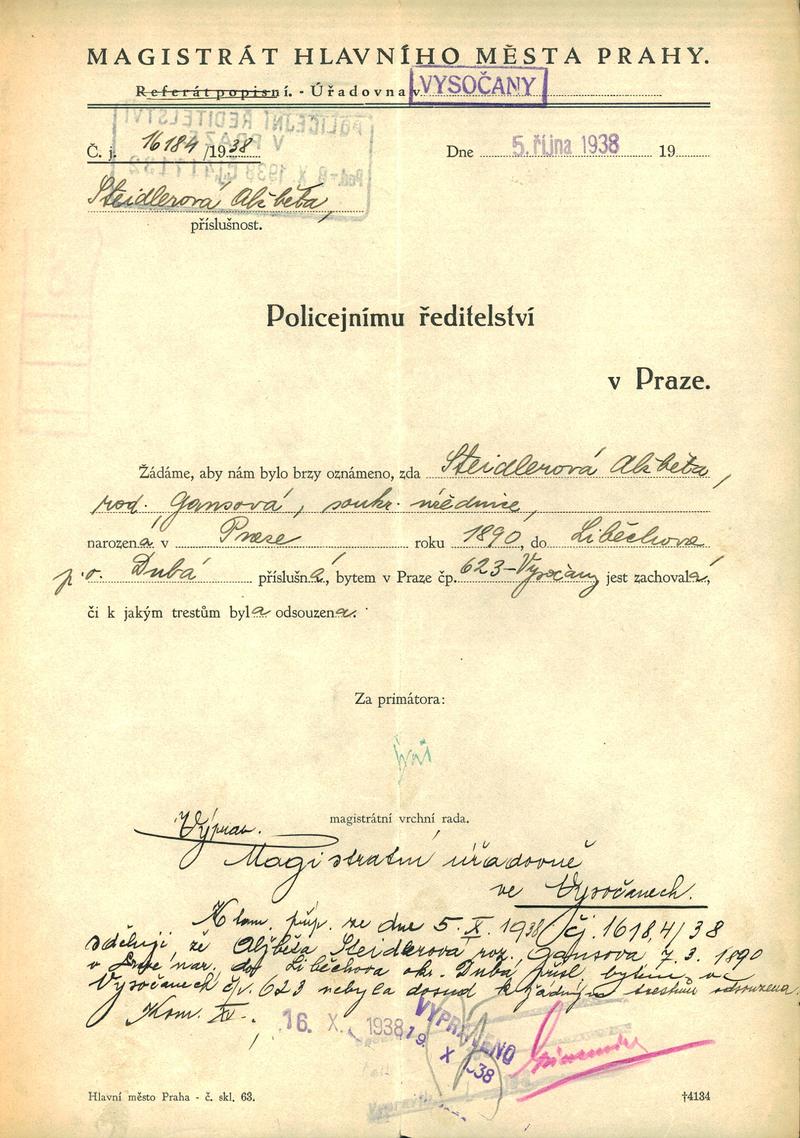 MAGISTRÁT HLAVNÍHO MĚSTA PRAHY.
Referát popisní. - Úřadovna v VYSOČANY
POLICEJNÍ ŘEDITELSTVÍ
V PRAZE
Č. j. 16184/1938
Dne 5. října 1938 19
Steidlerová Alžběta,
příslušnost.
Policejnímu ředitelství
v Praze.
Žádáme, aby nám bylo brzy oznámeno, zda Steidlerová Alžběta,
roz. Gansová, soukr. úřednice,
narozená v Praze roku 1890, do Liběchova
p. o. Dubá příslušná, bytem v Praze čp. 623-Vysočany jest zachovalá,
či k jakým trestům byla odsouzena.
Za primátora:
magistrátní vrchní rada.
Výprav.
Magistratní úřadovně
ve Vysočanech.
K tam. příp. ze dne 5. X. 1938 čj. 16184/38
sděluji, že Alžběta Steidlerova roz. Gansova 7. 3. 1890
v Praze nar. do Liběchova okr. Duba přísl. bytem ve
Vysočanech čp. 623 nebyla dosud k žádným trestům odsouzena.
Kom. XV.
16. X. 1938
VYPRAVENO
19. X. 38
Hlavní město Praha - č. skl. 63.
†4134